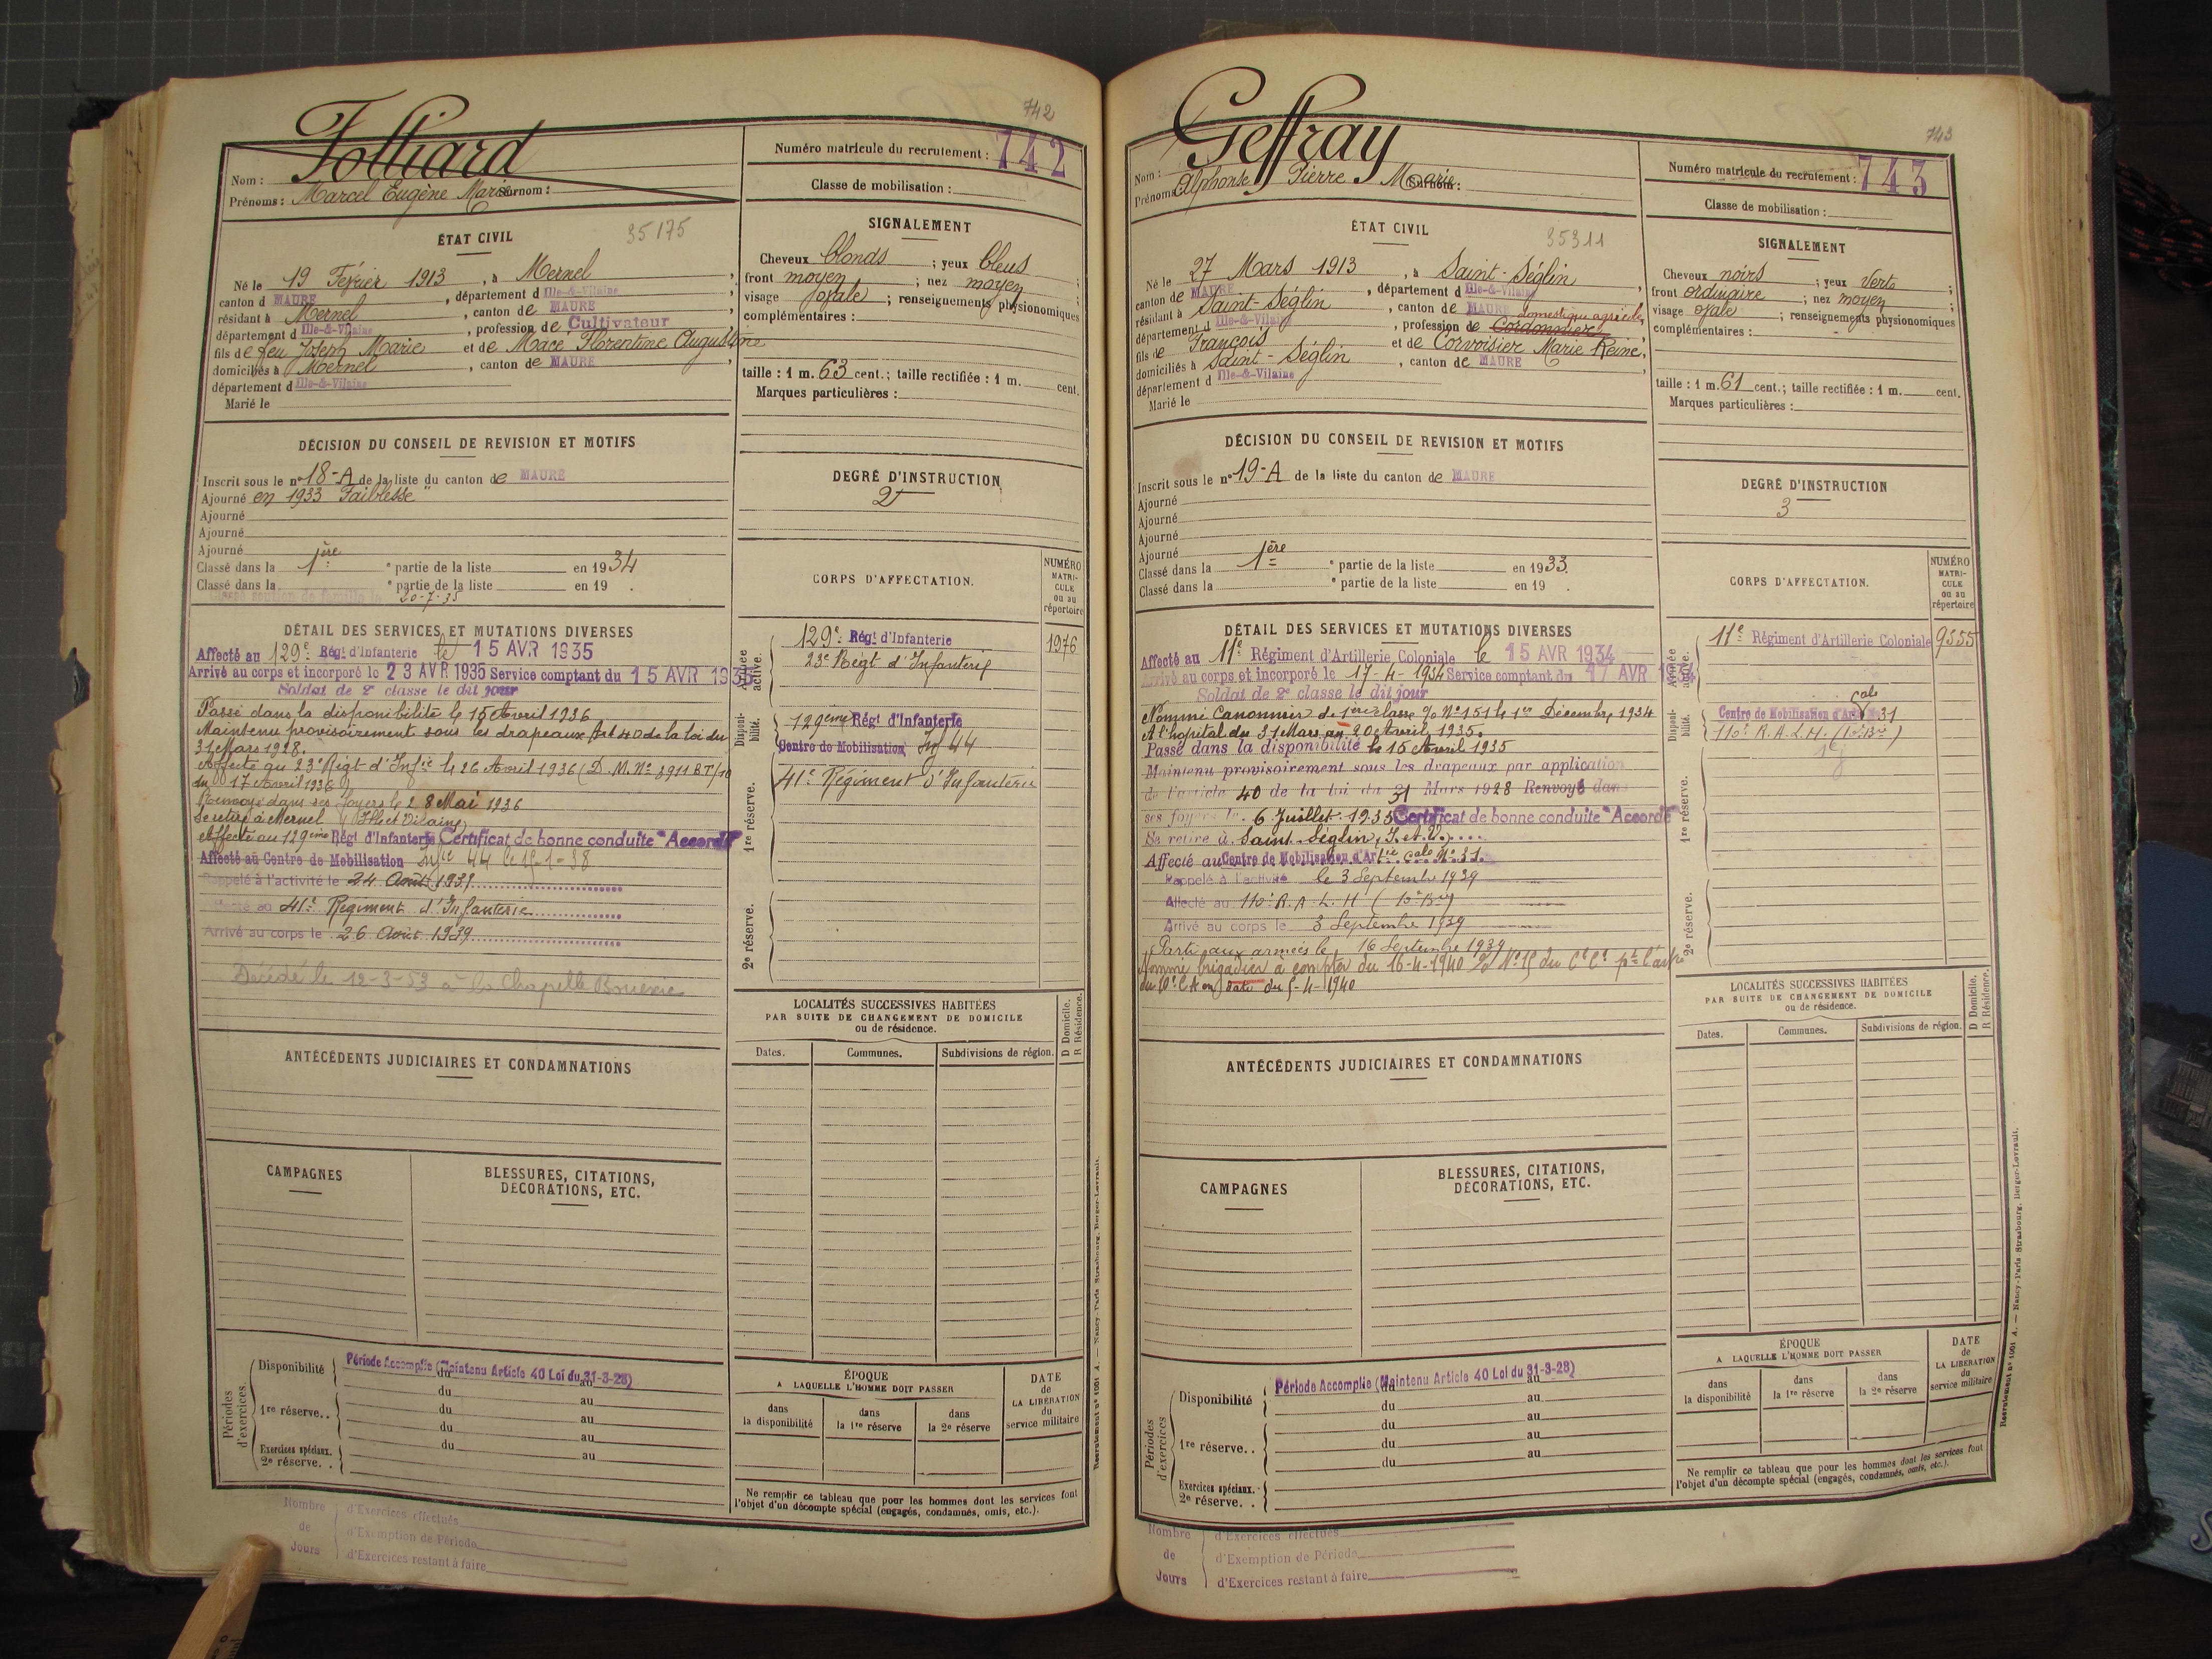 742
Folliard
Nom :
Prénoms : Marcel Eugène Marie Surnom :
Numéro matricule du recrutement : 742
Classe de mobilisation :
ÉTAT CIVIL
35175
Né le 19 Février 1913, à Mernel,
canton d MAURE, département d Ille-&-Vilaine,
résidant à Mernel, canton de MAURE,
département d Ille-&-Vilaine, profession de Cultivateur
fils de feu Joseph Marie et de Macé Florentine Augustine
domiciliés à Mernel, canton de MAURE,
département d Ille-&-Vilaine
Marié le
SIGNALEMENT
Cheveux blonds ; yeux bleus ;
front moyen ; nez moyen ;
visage ovale ; renseignements physionomiques
complémentaires :
taille : 1 m. 63 cent.; taille rectifiée : 1 m. cent.
Marques particulières :
DÉCISION DU CONSEIL DE REVISION ET MOTIFS
Inscrit sous le n° 18-A de la liste du canton de MAURE
Ajourné en 1933 "Faiblesse"
Ajourné
Ajourné
Ajourné
Classé dans la 1ère partie de la liste en 1934
Classé dans la e partie de la liste en 19 .
20-7-35
DEGRÉ D'INSTRUCTION
2
CORPS D'AFFECTATION.
NUMÉRO MATRI-CULE ou au répertoire
Armée active.
129e Régt d'Infanterie 1976
23e Régt d'Infanterie
Disponi-bilité.
129ème Régt d'Infanterie
Centre de Mobilisation Inf 44
1re réserve.
41e Régiment d'Infanterie
2e réserve.
DÉTAIL DES SERVICES ET MUTATIONS DIVERSES
Affecté au 129e Régt d'Infanterie le 15 AVR 1935
Arrivé au corps et incorporé le 23 AVR 1935 Service comptant du 15 AVR 1935
Soldat de 2e classe le dit jour
Passé dans la disponibilité le 15 Avril 1936
Maintenu provisoirement sous les drapeaux Art 40 de la loi du
31 Mars 1928.
Affecté au 23e Régt d'Infie le 26 Avril 1936 (D.M. No 3911 BT/10
du 17 Avril 1936)
Renvoyé dans ses foyers le 28 Mai 1936
Se retire à Mernel (Ille et Vilaine)
Affecté au 129ème Régt d'Infanterie Certificat de bonne conduite "Accordé"
Affecté au Centre de Mobilisation Infie 44 le 15-1-38
Rappelé à l'activité le 24 Août 1939
Affecté au 41e Régiment d'Infanterie
Arrivé au corps le 26 Août 1939
Décédé le 12-3-53 à la Chapelle Bouëxic
LOCALITÉS SUCCESSIVES HABITÉES
PAR SUITE DE CHANGEMENT DE DOMICILE
ou de résidence.
D Domicile. R Résidence.
Dates. Communes. Subdivisions de région.
ANTÉCÉDENTS JUDICIAIRES ET CONDAMNATIONS
CAMPAGNES
BLESSURES, CITATIONS,
DÉCORATIONS, ETC.
Périodes d'exercices.
Disponibilité
Période Accomplie (Maintenu Article 40 Loi du 31-3-28)
du au
du au
1re réserve. . du au
du au
Exercices spéciaux. du au
2e réserve. .
ÉPOQUE
A LAQUELLE L'HOMME DOIT PASSER
dans la disponibilité
dans la 1re réserve
dans la 2e réserve
DATE de LA LIBÉRATION du service militaire
Ne remplir ce tableau que pour les hommes dont les services font
l'objet d'un décompte spécial (engagés, condamnés, omis, etc.).
Nombre de Jours
d'Exercices effectués
d'Exemption de Période
d'Exercices restant à faire
Recrutement n° 1001 A. — Nancy-Paris-Strasbourg, Berger-Levrault.
743
Geffray
Nom :
Prénoms Alphonse Pierre Marie Surnom :
Numéro matricule du recrutement : 743
Classe de mobilisation :
ÉTAT CIVIL
35311
Né le 27 Mars 1913, à Saint-Séglin,
canton de MAURE, département d Ille-&-Vilaine
résidant à Saint-Séglin, canton de MAURE
domestique agricole
département d Ille-&-Vilaine, profession de Cordonnier
fils de François et de Corvoisier Marie Reine,
domiciliés à Saint-Séglin, canton de MAURE
département d Ille-&-Vilaine
Marié le
SIGNALEMENT
Cheveux noirs ; yeux verts ;
front ordinaire ; nez moyen ;
visage ovale ; renseignements physionomiques
complémentaires :
taille : 1 m. 61 cent.; taille rectifiée : 1 m. cent.
Marques particulières :
DÉCISION DU CONSEIL DE REVISION ET MOTIFS
Inscrit sous le n° 19-A de la liste du canton de MAURE
Ajourné
Ajourné
Ajourné
Ajourné
Classé dans la 1ère partie de la liste en 1933.
Classé dans la e partie de la liste en 19 .
DEGRÉ D'INSTRUCTION
3
CORPS D'AFFECTATION.
NUMÉRO MATRI-CULE ou au répertoire
Armée active.
11e Régiment d'Artillerie Coloniale 9555
Disponi-bilité.
Centre de Mobilisation d'Artie Cale 31
110e R.A.L.H. (10e Bie)
1re réserve.
2e réserve.
DÉTAIL DES SERVICES ET MUTATIONS DIVERSES
Affecté au 11e Régiment d'Artillerie Coloniale le 15 AVR 1934
Arrivé au corps et incorporé le 17-4-1934 Service comptant du 17 AVR 1934
Soldat de 2e classe le dit jour
Nommé Canonnier de 1ère classe O/ No 151 le 1er Décembre 1934
A l'hôpital du 31 Mars au 20 Avril 1935.
Passé dans la disponibilité le 15 Avril 1935
Maintenu provisoirement sous les drapeaux par application
de l'article 40 de la loi du 31 Mars 1928 Renvoyé dans
ses foyers le 6 Juillet 1935 Certificat de bonne conduite "Accordé"
Se retire à Saint-Séglin, I. et V.
Affecté au Centre de Mobilisation d'Artie cale No 31.
Rappelé à l'activité le 3 Septembre 1939
Affecté au 110e R.A.L.H (10e Bie)
Arrivé au corps le 3 Septembre 1939
Parti aux armées le 16 Septembre 1939
Nommé brigadier à compter du 16-4-1940
date du 5-4-1940
LOCALITÉS SUCCESSIVES HABITÉES
PAR SUITE DE CHANGEMENT DE DOMICILE
ou de résidence.
D Domicile. R Résidence.
Dates. Communes. Subdivisions de région.
ANTÉCÉDENTS JUDICIAIRES ET CONDAMNATIONS
CAMPAGNES
BLESSURES, CITATIONS,
DÉCORATIONS, ETC.
Périodes d'exercices
Disponibilité
Période Accomplie (Maintenu Article 40 Loi du 31-3-28)
du au
du au
1re réserve. . du au
du au
Exercices spéciaux. du au
2e réserve. .
ÉPOQUE
A LAQUELLE L'HOMME DOIT PASSER
dans la disponibilité
dans la 1re réserve
dans la 2e réserve
DATE de LA LIBÉRATION du service militaire
Ne remplir ce tableau que pour les hommes dont les services font
l'objet d'un décompte spécial (engagés, condamnés, omis, etc.).
Nombre de Jours
d'Exercices effectués
d'Exemption de Période
d'Exercices restant à faire
Recrutement n° 1001 A. — Nancy-Paris-Strasbourg, Berger-Levrault.